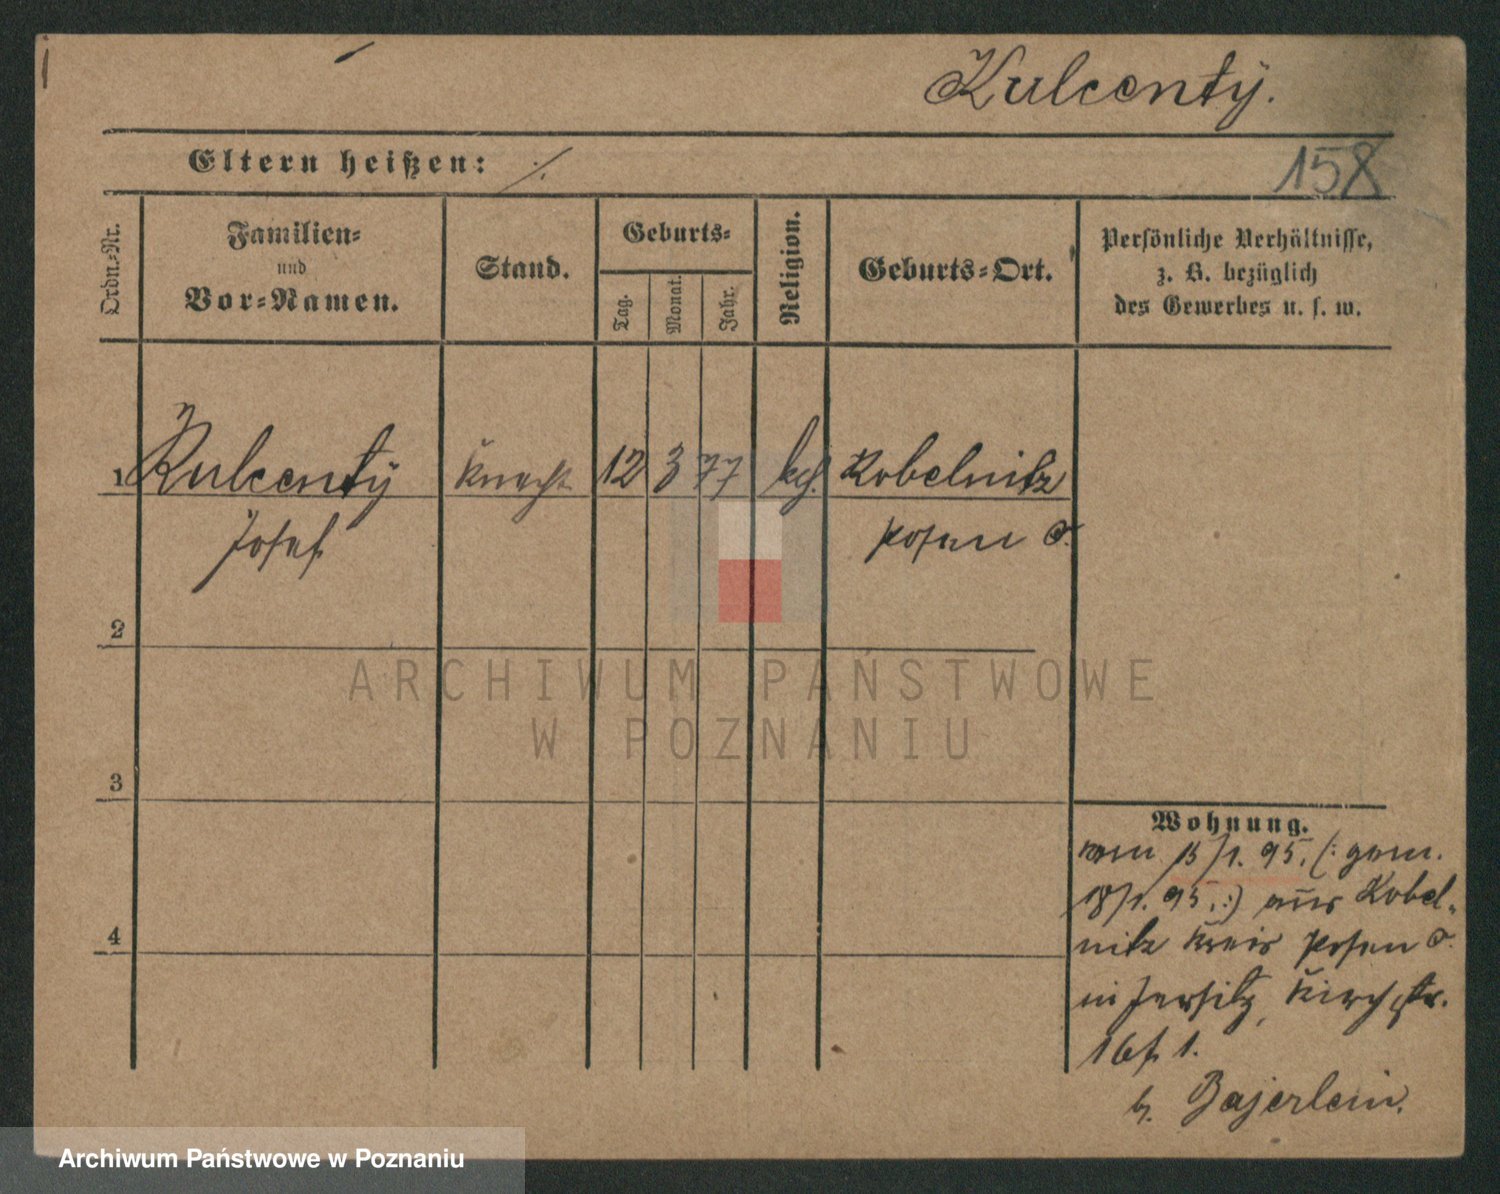 Kulcentÿ.
Eltern heißen: ./.
158
Ordn.-Nr.
Familien-
und
Vor-Namen.
Stand.
Geburts-
Tag.
Monat.
Jahr.
Religion.
Geburts-Ort.
Persönliche Verhältnisse,
z. B. bezüglich
des Gewerbes u. s. w.
1 Kulcentÿ Knecht 12 3 77 kth. Kobelnitz
Josef Posen O.
2
3
4
Wohnung.
vom 15/1. 95. (: gem.
18/1. 95. :) aus Kobel-
nitz Kreis Posen O.
in Jersitz, Kirchstr.
16 f. 1.
b. Bajerlein.
ARCHIWUM PAŃSTWOWE
W POZNANIU
Archiwum Państwowe w Poznaniu